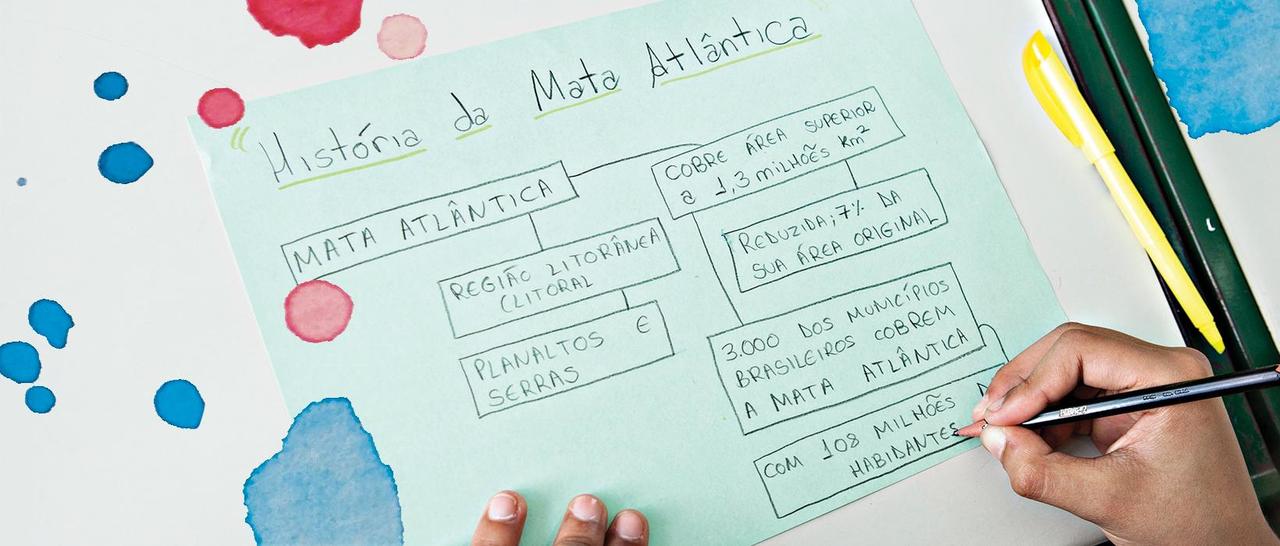 "História da Mata Atlântica
MATA ATLÂNTICA
REGIÃO LITORÂNEA
(LITORAL
PLANALTOS E
SERRAS
COBRE ÁREA SUPERIOR
a 1,3 milHÕES Km²
REDUZIDA; 7% DA
SUA ÁREA ORIGINAL
3.000 DOS MUNICÍPIOS
BRASILEIROS COBREM
A MATA ATLÂNTICA
COM 108 MILHÕES D
HABIDANTES